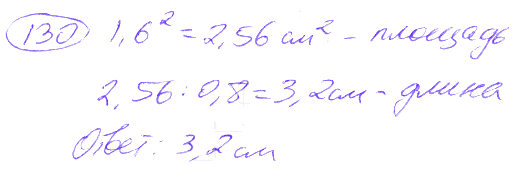 130 1,6² = 2,56 см² - площадь
2,56 : 0,8 = 3,2 см - длина
Ответ: 3,2 см